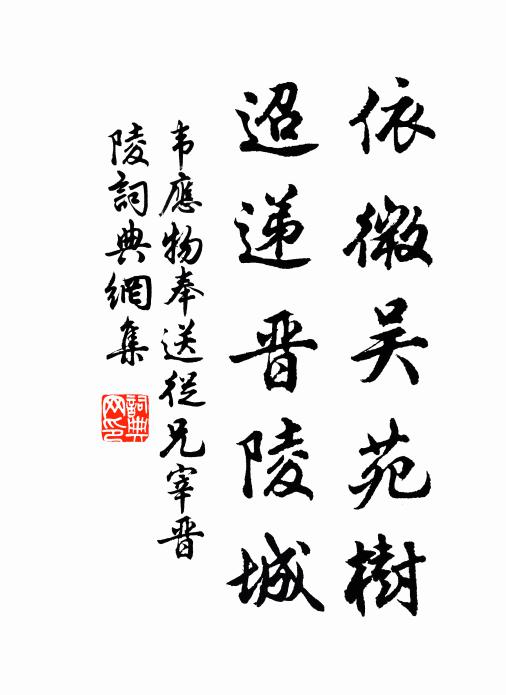 依微吴苑樹
迢递晋陵城
韦應物奉送從兄宰晋
陵詞典網集
詞典
网印